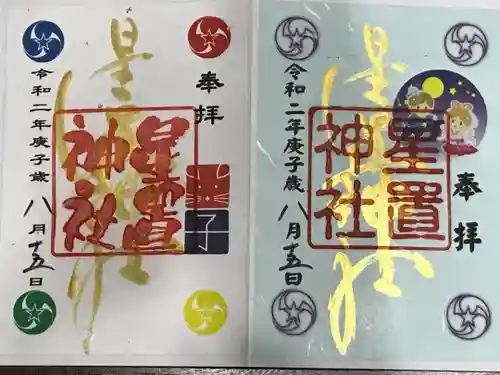 奉拝
星置神社
星置神社
子
令和二年庚子歳八月十五日
奉拝
星置神社
星置神社
令和二年庚子歳八月十五日